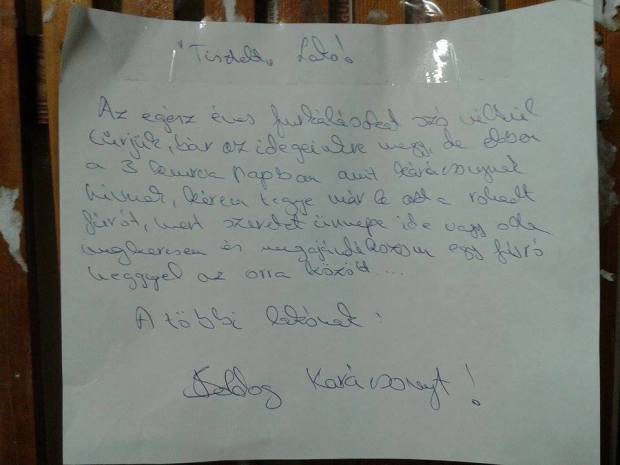 "Tisztelt" Lakó!
Az egész éves furkálásodat szó nélkül
tűrjük, bár az idegeinkre megy, de ebben
a 3 kurva napban amit karácsonynak
hívnak, kérem tegye már le azt a rohadt
fúrót, mert szeretet ünnepe ide vagy oda
megkeresem és megajándékozom egy fúró
heggyel az orra között...
A többi lakónak:
Boldog Karácsonyt!